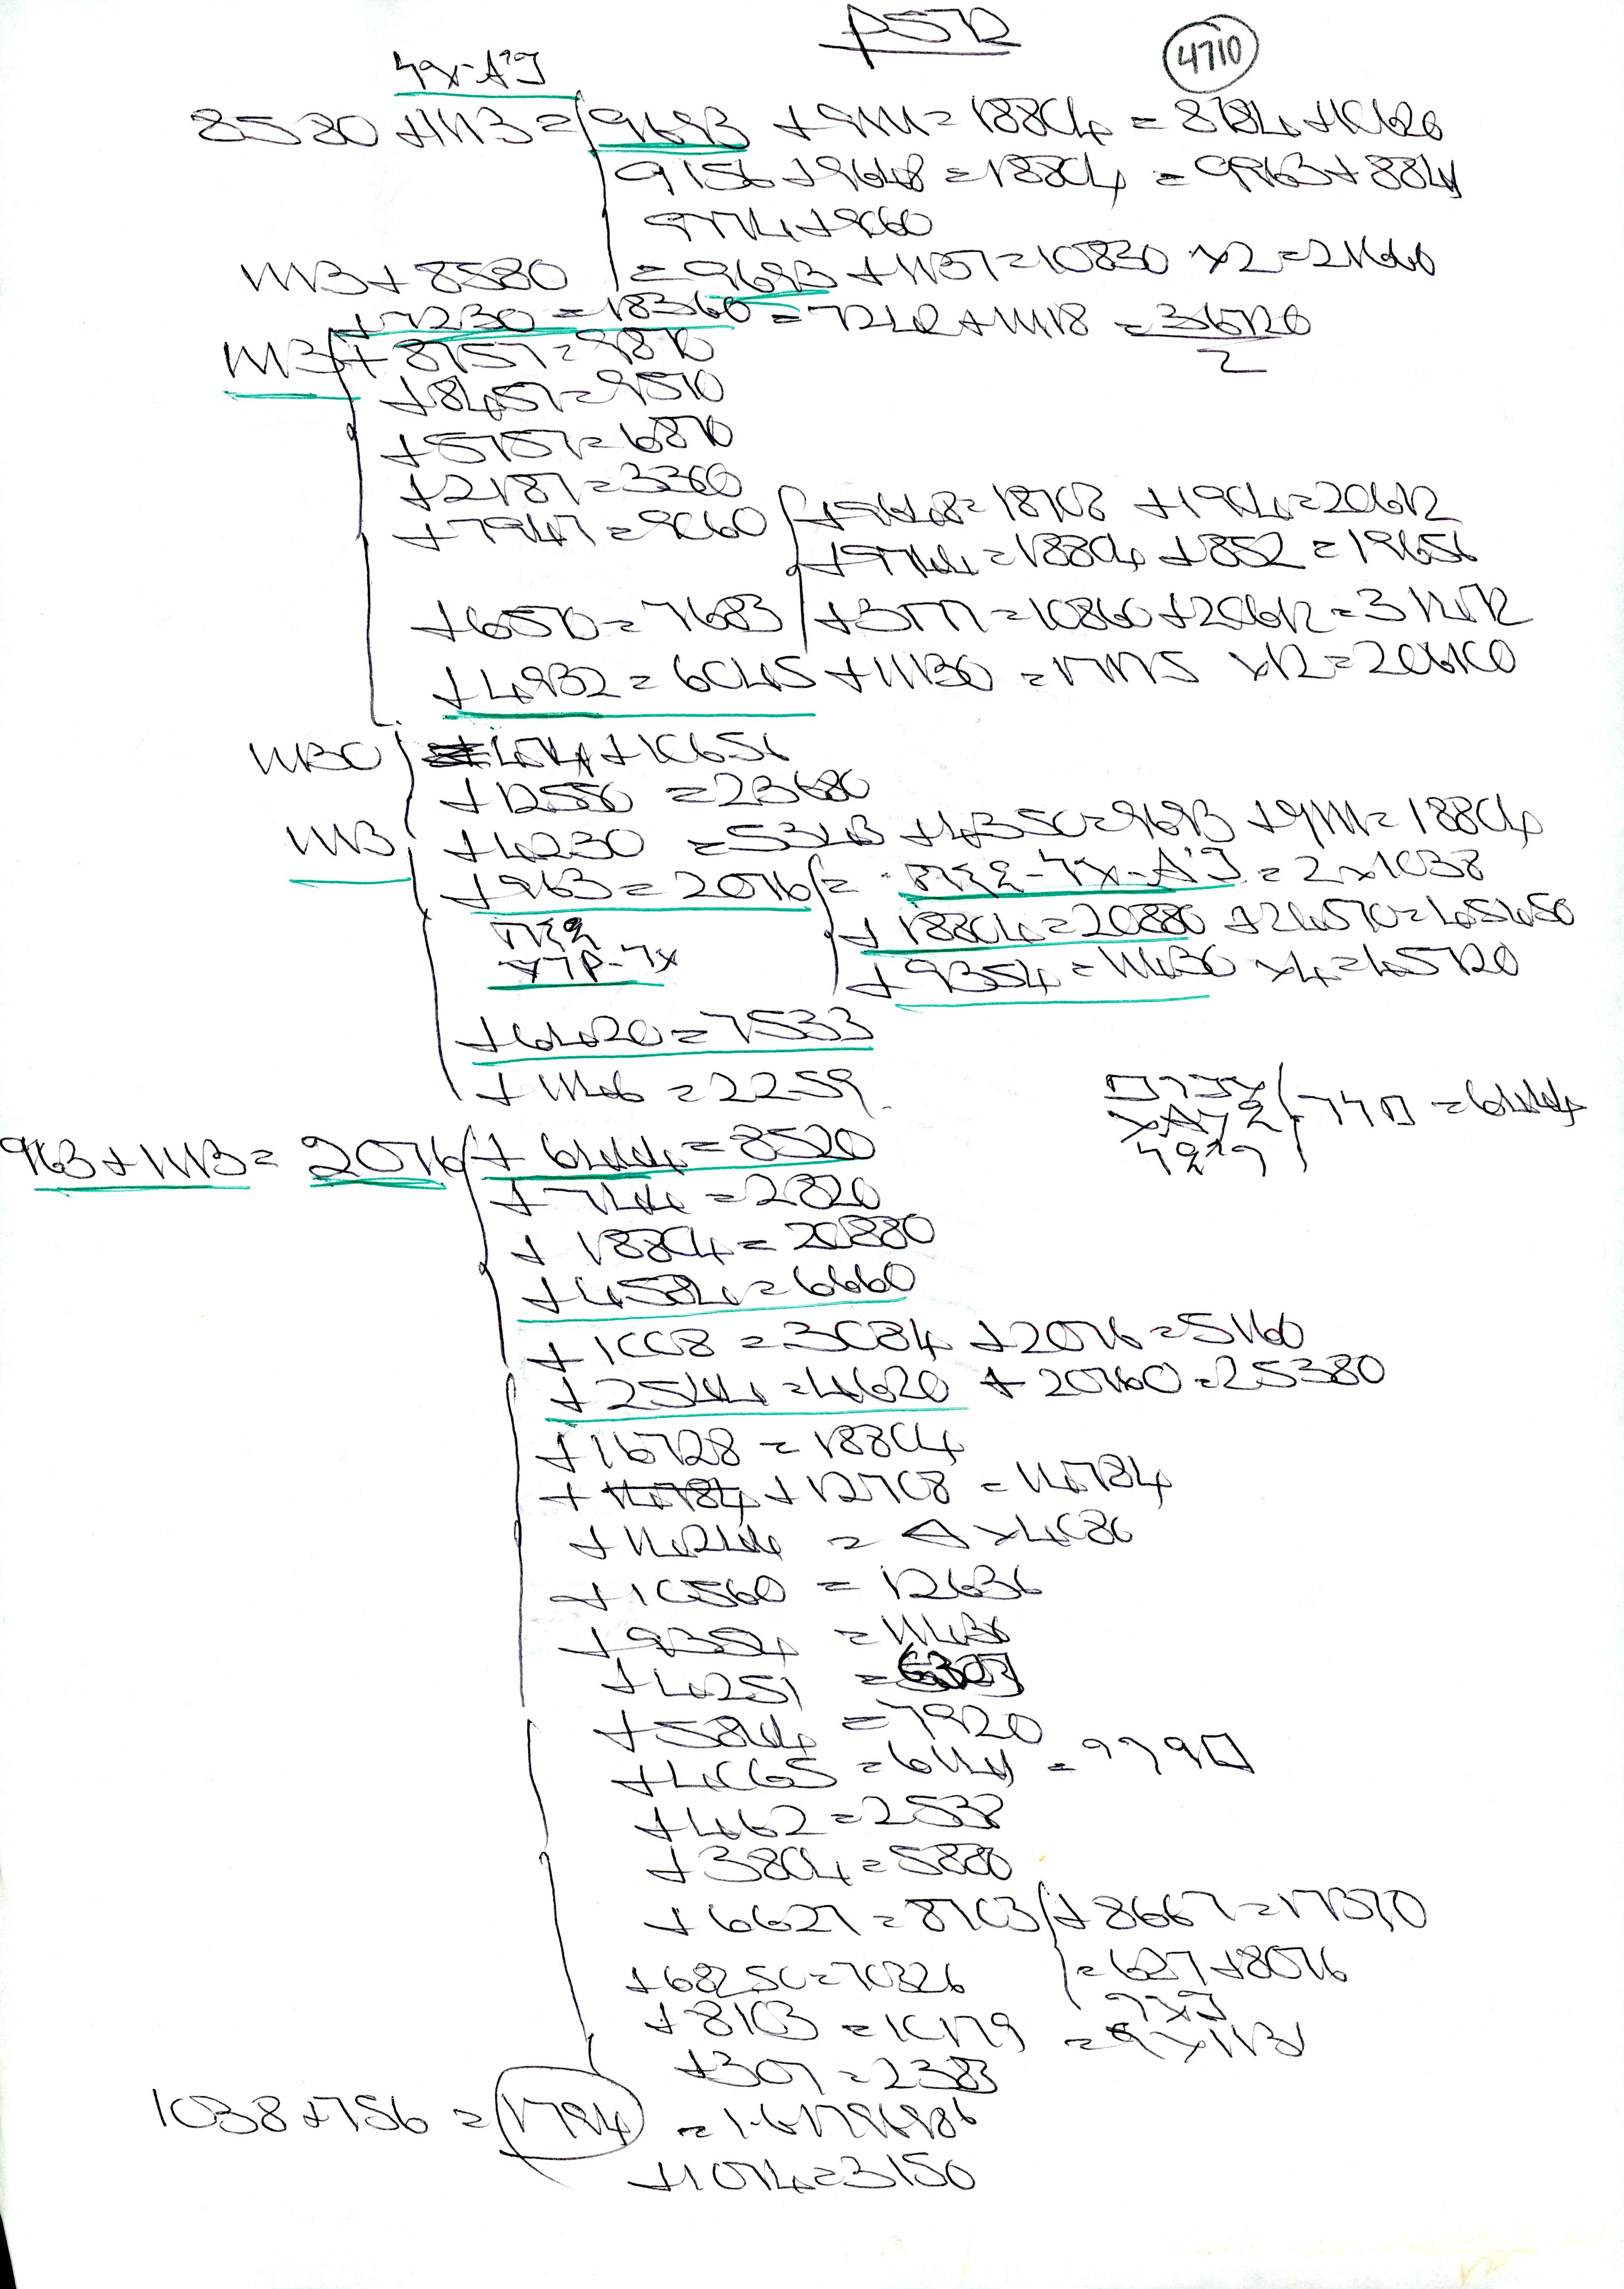 4710
8580 +1113 = 9693 + 9111 = 18804 = 8184 + 10620
9156 + 9648 = 18804 = 9963 + 8841
9744 + 9060
1113 + 8580 = 9693 + 1137 = 10830 × 2 = 21660
+ 7230 = 18360 = 7242 + 11118 = 36720
2
1113 + 8757 = 9870
+ 8457 = 9570
+ 5757 = 6870
+ 2187 = 3300
+ 7947 = 9060 + 9648 = 18708 + 1904 = 20612
+ 9744 = 18804 + 852 = 19656
+ 6570 = 7683 + 3177 = 10860 + 20612 = 31472
+ 4932 = 6045 + 11130 = 17175 × 12 = 206100
11130 474 + 10656
+ 12550 = 23680
1113 + 4230 = 5343 + 4350 = 9693 + 9111 = 18804
+ 963 = 2076 = = 2 × 1038
+ 18804 = 20880 + 24570 = 45450
+ 9354 = 11430 × 4 = 45720
+ 6420 = 7533
+ 1146 = 2259
= 6444
963 + 1113 = 2076 + 6444 = 8520
+ 744 = 2820
+ 18804 = 20880
+ 4584 = 6660
+ 1008 = 3084 + 2076 = 5160
+ 2544 = 4620 + 20760 = 25380
+ 16728 = 18804
+ 14784 + 12708 = 14784
+ 14244 = 4 × 4080
+ 10560 = 12636
+ 9354 = 11430
+ 4251 = 6327
+ 5844 = 7920
+ 4065 = 6141 =
+ 462 = 2538
+ 3804 = 5880
+ 6627 = 8703 + 8667 = 17370
= 627 + 8076
+ 68250 = 70326
+ 8103 = 10179 = 9 × 1131
+ 307 = 2383
1038 + 756 = 1794
+ 1074 = 3150